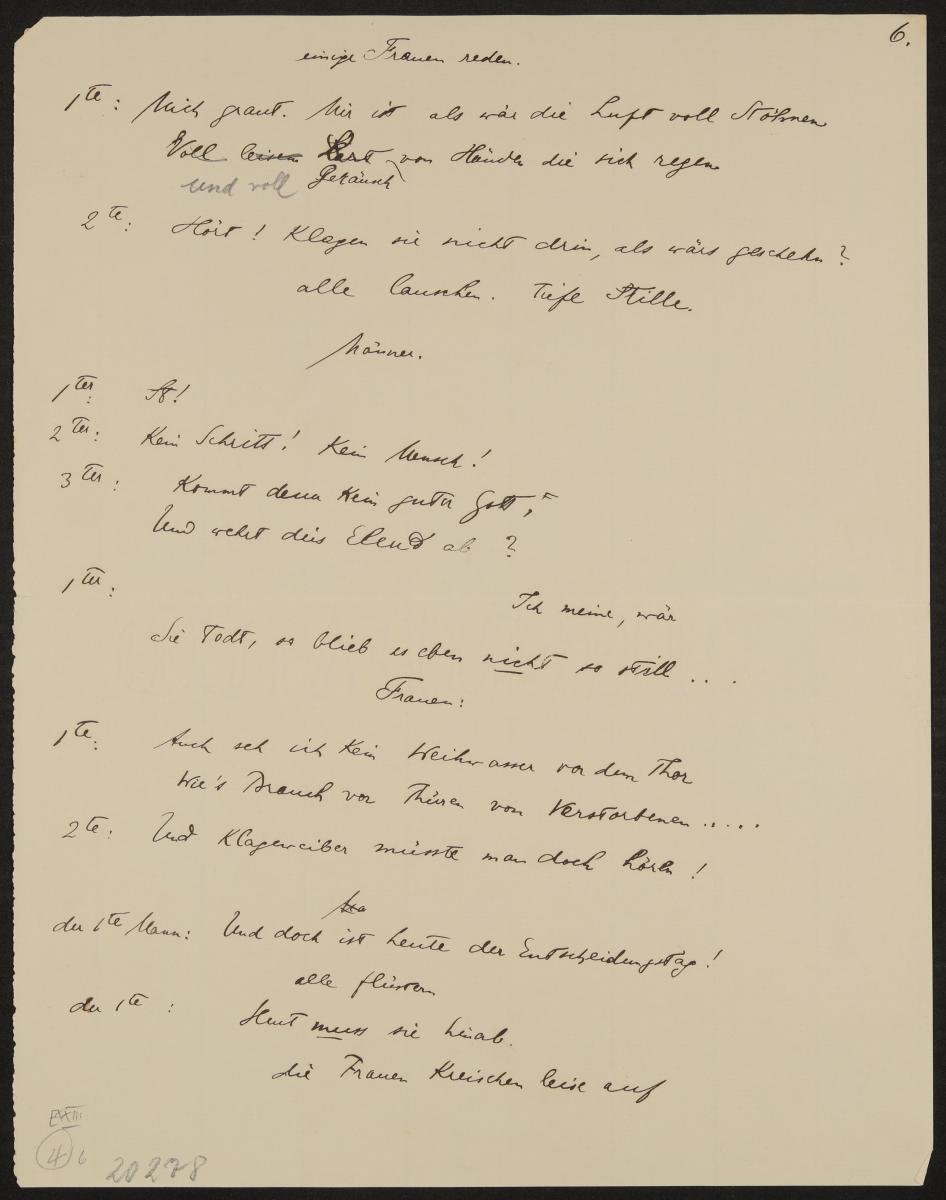 6.
einige Frauen reden.
1te: Mich graut. Mir ist als wär die Luft voll Stöhnen
Voll leisen von Händen die sich regen
und voll Geräusch
2te: Hört! Klagen sie nicht drin, als wärs geschehn?
alle lauschen. Tiefe Stille.
Männer.
1ter: St!
2ter: Kein Schritt! Kein Mensch!
3ter: Kommt denn kein guter Gott,
Und wehrt dies Elend ab?
1ter: Ich meine, wär
Sie Todt, so blieb es eben nicht so still ...
Frauen:
1te: Auch seh ich kein Weihwasser vor dem Thor
Wie's Brauch vor Thüren von Verstorbenen .....
2te: Und Klageweiber müsste man doch hören!
der 1te Mann: Und doch ist heute der Entscheidungstag!
alle flüstern
der 1te: Heut muss sie hinab.
die Frauen Kreischen leise auf
4 6
20278